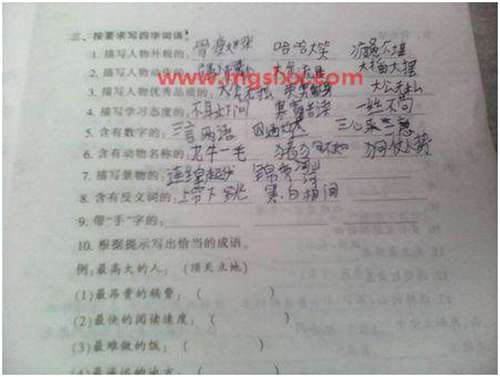 三、按要求写四字词语。
1. 描写人物外貌的: 骨瘦如柴 哈哈大笑
2. 描写人物动 大摇大摆
www.mgslxx.com
3. 描写人物优秀品质的: 大公无私 大公无私
4. 描写学习态度的: 不耻下问 寒窗苦读
5. 含有数字的: 三言两语 四通 三心 二意
6. 含有动物名称的: 九牛一毛 狗仗人势
7. 描写景物的: 连绵起伏 锦秀河
8. 含有反义词的: 上窜下跳 黑白相间
9. 带“手”字的:
10. 根据提示写出恰当的成语。
例:最高大的人: (顶天立地)
(1)最昂贵的稿费: (
(2)最快的阅读速度: (
(3)最难做的饭: (
(4)最遥远的地方: (